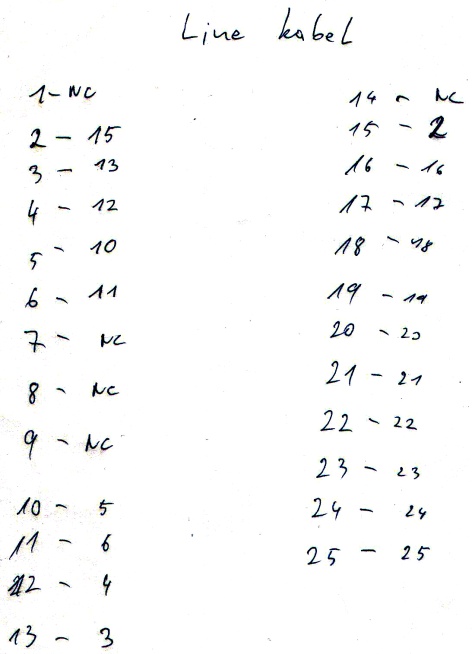 Line kabel
1 - NC
2 - 15
3 - 13
4 - 12
5 - 10
6 - 11
7 - NC
8 - NC
9 - NC
10 - 5
11 - 6
12 - 4
13 - 3
14 - NC
15 - 2
16 - 16
17 - 17
18 - 18
19 - 19
20 - 20
21 - 21
22 - 22
23 - 23
24 - 24
25 - 25